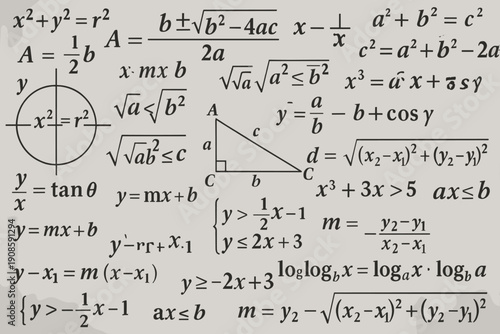 x² + y² = r²
A = 1/2 b
A = b ± √(b² − 4ac) / 2a
x − 1/x
a² + b² = c²
c² = a² + b² − 2a
x · mx b
√√a √(a² ≤ b²)
y
x² = r²
√a < √b²
y = a/b − b + cos γ
√√ab² ≤ c
A
a
c
C
b
C
d = √(x₂−x₁)² + (y₂−y₁)²
y/x = tan θ
y = mx + b
x³ + 3x > 5
ax ≤ b
y = mx + b
{ y > 1/2 x − 1
y ≤ 2x + 3
m = − y₂−y₁ / x₂−x₁
y − x₁ = m (x − x₁)
y ≥ −2x + 3
loglog_b x = log_a x · log_b a
{ y > − 1/2 x − 1
ax ≤ b
m = y₂ − √(x₂−x₁)² + (y₂−y₁)²
Adobe Stock | #1908591294